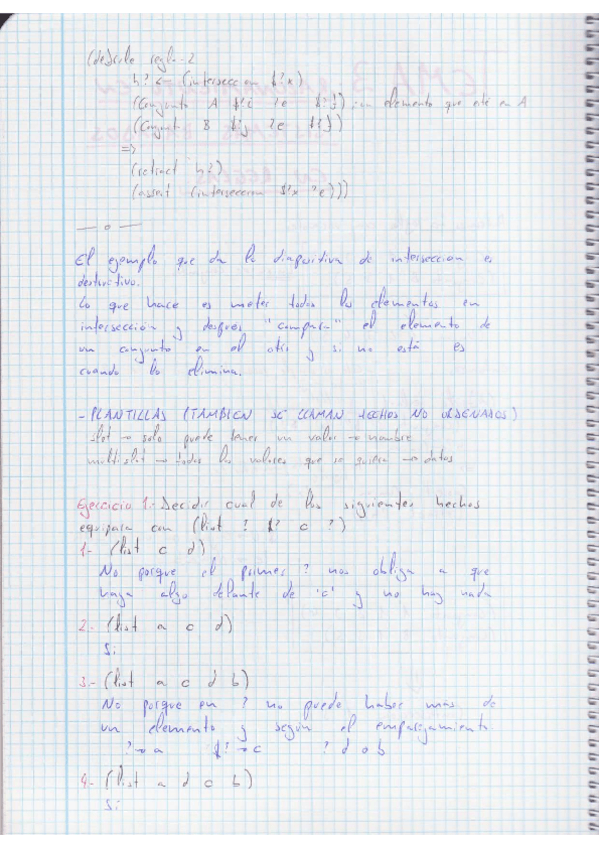 (defrule regla-2
h? <- (interseccion $?x)
(Conjunto A $?i ?e $?f) ;un elemento que esté en A
(Conjunto B $?j ?e $?f))
=>
(retract h?)
(assert (interseccion $?x ?e)))
— o —
El ejemplo que da la diapositiva de interseccion es
destructivo.
Lo que hace es meter todos los elementos en
intersección y después "compara" el elemento de
un conjunto en el otro y si no está es
cuando lo elimina.
- PLANTILLAS (TAMBIEN SE LLAMAN HECHOS NO ORDENADOS)
slot → solo puede tener un valor → nombre
multislot → todos los valores que se quiera → datos
Ejercicio 1.- Decidir cual de los siguientes hechos
equipara con (list ? $? c ?)
1.- (list c d)
No porque el primer ? nos obliga a que
haya algo delante de 'c' y no hay nada
2.- (list a c d)
Si
3.- (list a c d b)
No porque en ? no puede haber más de
un elemento y según el emparejamiento
? → a $? → c ? d o b
4.- (list a d c b)
Si